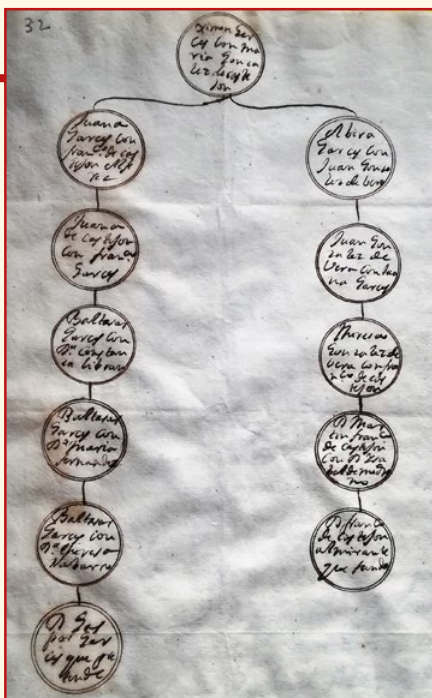 32
Ximen Gar
ces con ma
ria Gonça
lez de caste
jon
Juana
Garces con
fran.co de cas
tejon Alf
rez
Juana
de castejon
con fran.co
Garces
Baltasar
Garces con
D.ª constan
za
Baltasar
Garces con
D.ª maria
fernandez
Baltasar
Garces con
D.ª theresa
Nabarro
D. Gas
par Gar
ces que pre
tende
Albira
Garces con
Juan Gonza
lez de bera
Juan Gon
zalez de
Vera con Jua
na Garces
Theresa
Gonzalez de
Vera con fra
n.co de cas
tejon
D. Mar
con fran.co
de castejon
con D.
D. fran.co
de castejon
almirante
que funda